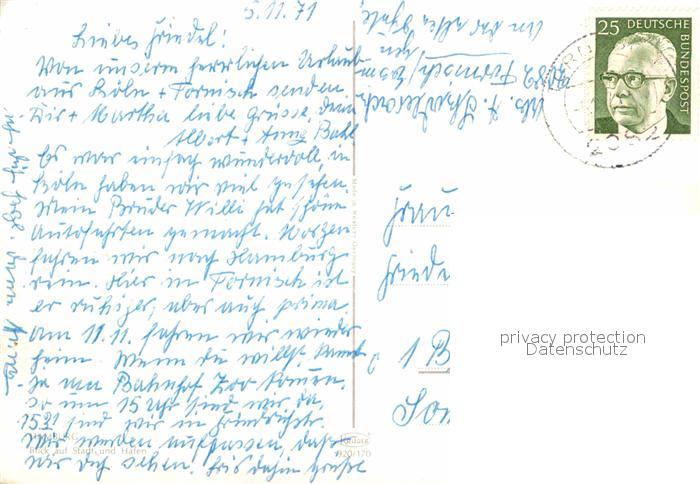 5.11.71
Liebes Friedel!
Von unserm herrlichen Urlaub
aus Köln + Tornisch senden
Dir + Martha liebe Grüsse, dein
Albert + Anny Bahl
Es war einfach wundervoll, in
Köln haben wir viel gesehen.
Mein Bruder Willi hat schöne
Autofahrten gemacht. Morgen
fahren wir nach Hamburg
rein. Hier in Tornisch ist
er ruhiger, aber auch prima.
Am 11.11. fahren wir wieder
heim. Wenn du willst kannst
Ja am Bahnhof Zoo kommen.
so um 15 Uhr sind wir da,
15 21 sind wir in Friedrichstr.
Wir werden aufpassen, daß
wir dich sehen. Bis dahin grüßt
HAMBURG
Blick auf Stadt und Hafen
Krüger
920/170
Frau
Friede
1 B
Son
25 DEUTSCHE
BUNDESPOST
privacy protection
Datenschutz